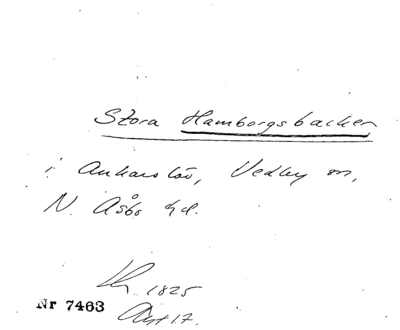 Stora Hamborgsbacken
i Ankarslöv, Vedby sn,
N. Åsbo hd.
1825
Nr 7463
Avst 17.